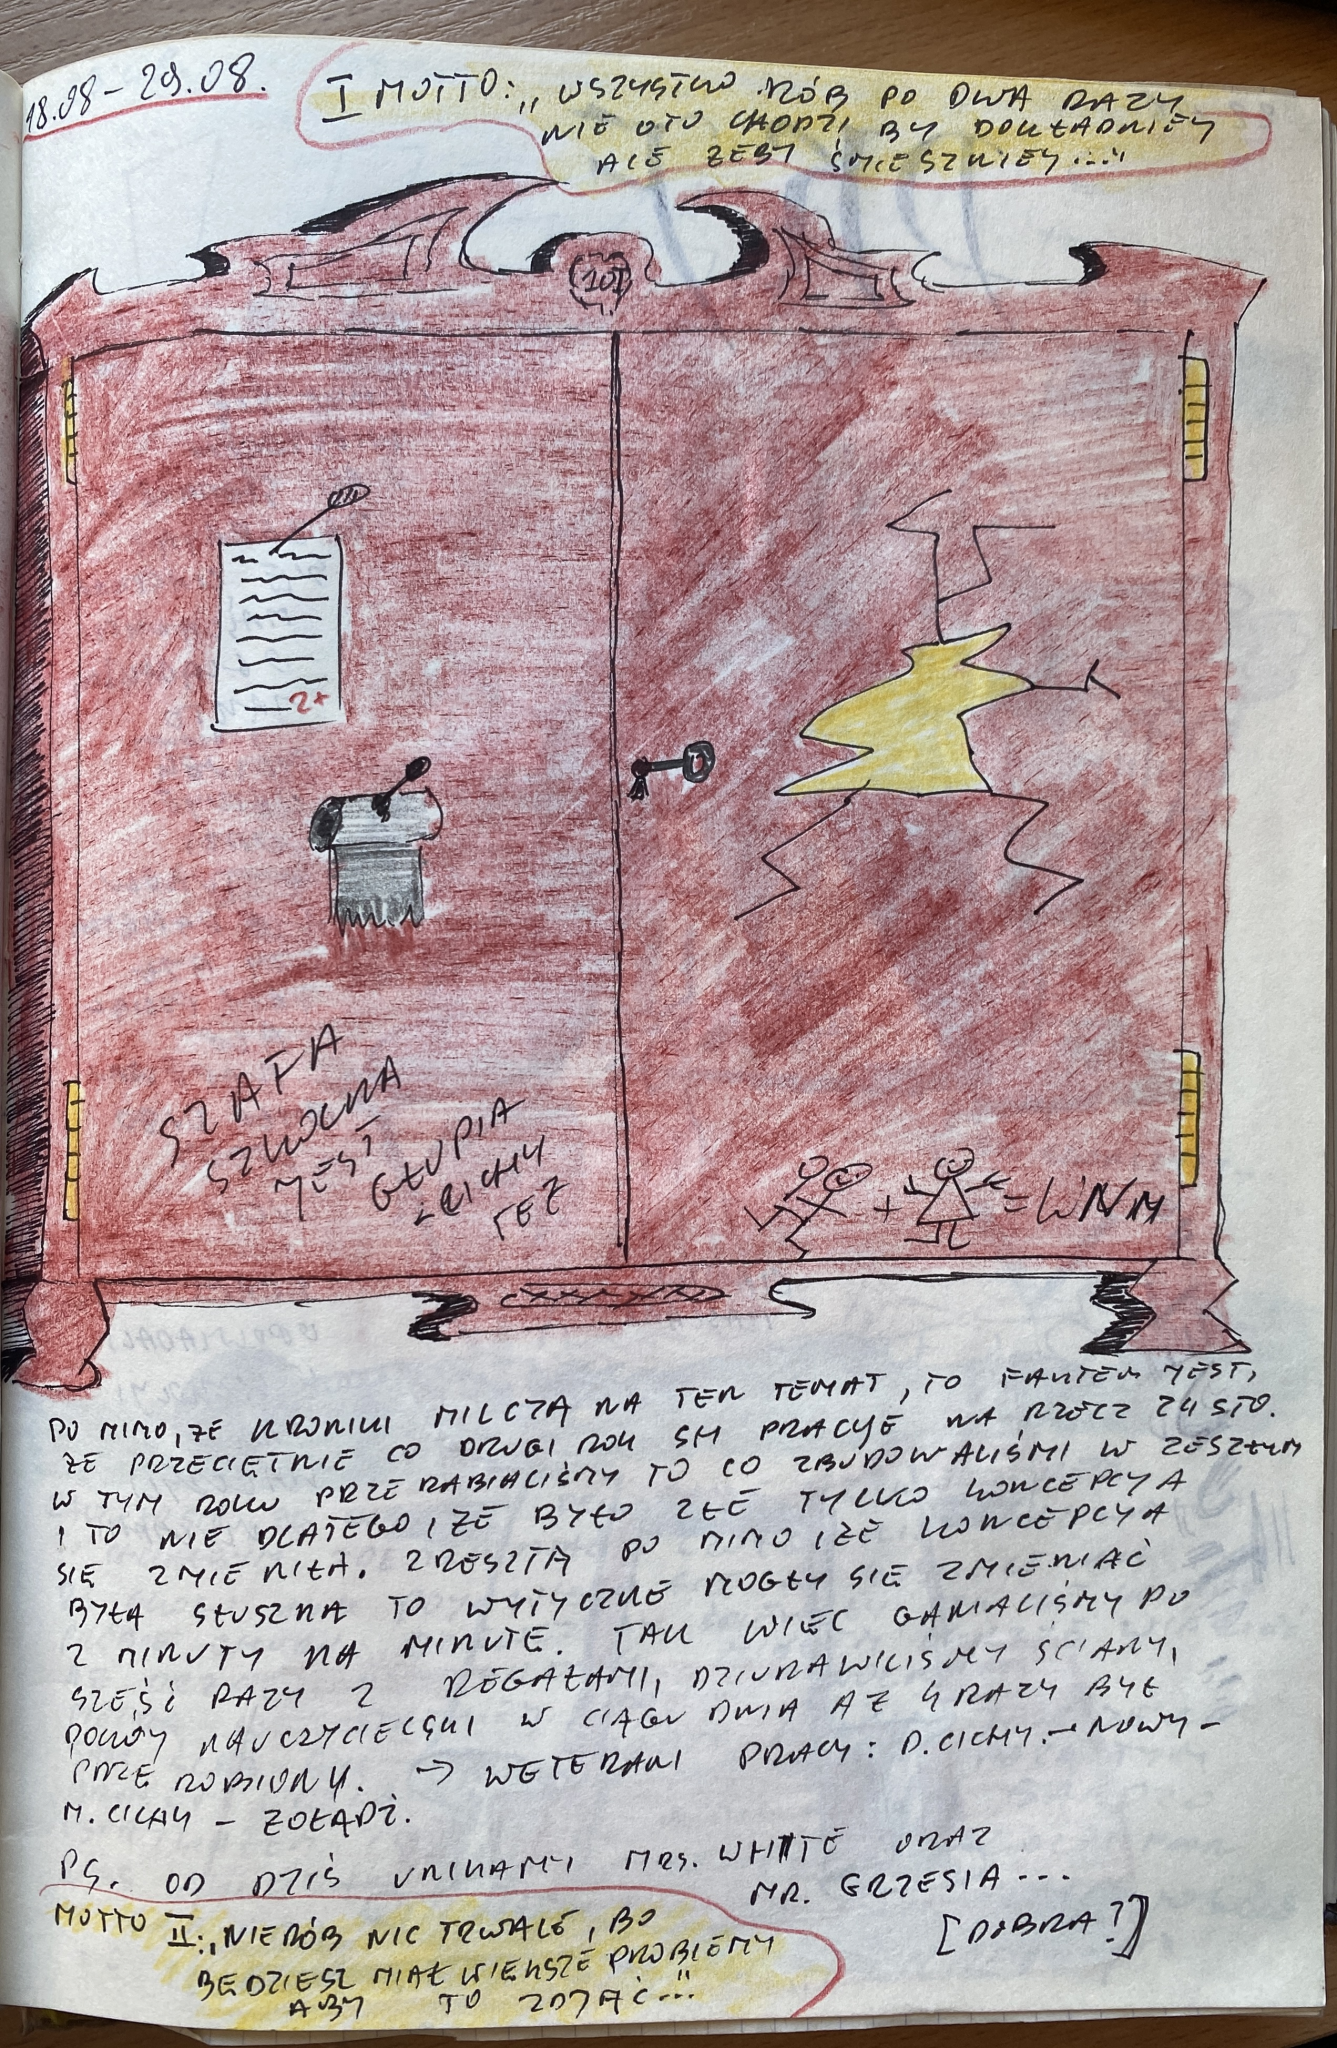 18.08 - 29.08.
I MOTTO: „WSZYSTKO RÓB PO DWA RAZY
NIE OTO CHODZI BY DOKŁADNIEY
ALE ŻEBY ŚMIESZNIEY..."
101
2+
SZAFA
SZKOLNA
JEST
GŁUPIA
CICHY
TEŻ
+ = WNM
PO MIMO, ŻE KRONIKI MILCZĄ NA TEN TEMAT, TO FAKTEM JEST,
ŻE PRZECIĘTNIE CO DRUGI ROK SM PRACUJE NA RZECZ ZHSTO.
W TYM ROKU PRZERABIALIŚMY TO CO ZBUDOWALIŚMI W ZESZŁYM
I TO NIE DLATEGO IŻE BYŁO ZŁE TYLKO KONCEPCJA
SIĘ ZMIENIŁA. ZRESZTĄ PO MIMO IŻE KONCEPCJA
BYŁA SŁUSZNA TO WYTYCZNE MOGŁY SIĘ ZMIENIAĆ
Z MINUTY NA MINUTĘ. TAK WIĘC GANIALIŚMY PO
SZEŚĆ RAZY Z REGAŁAMI, DZIURAWILIŚMY ŚCIANY,
POKÓJ NAUCZYCIELSKI W CIĄGU DNIA AŻ 4 RAZY BYŁ
PRZEROBIONY. → WETERANI PRACY: D. CICHY. - NOWY -
M. CICHY - ŻOŁĄDŹ.
PS. OD DZIŚ UNIKAMY MRS. WHITE ORAZ
MR. GRZESIA...
[DOBRA?]
MOTTO II: „NIERÓB NIC TRWALE, BO
BĘDZIESZ MIAŁ WIĘKSZE PROBLEMY
ABY TO ZDJĄĆ..."